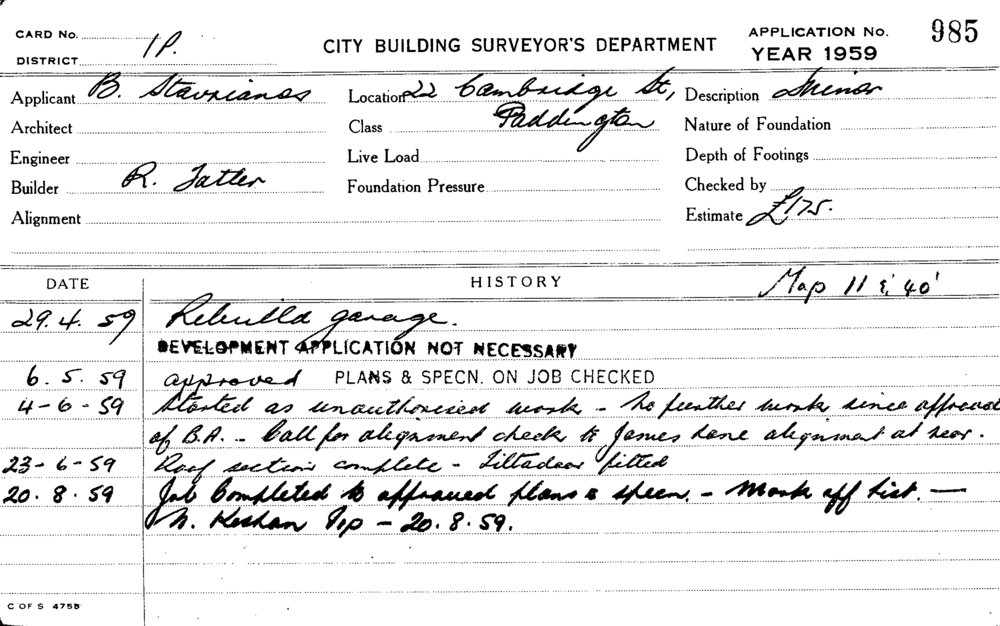 CARD No. 1P.
DISTRICT
CITY BUILDING SURVEYOR'S DEPARTMENT
APPLICATION No. 985
YEAR 1959
Applicant B. Stavrianos
Location 22 Cambridge St,
Description Minor
Architect
Class Paddington
Nature of Foundation
Engineer
Live Load
Depth of Footings
Builder R. Tatler
Foundation Pressure
Checked by
Alignment
Estimate £175.
DATE HISTORY Map 11 & 40'
29.4.59 Rebuild garage.
DEVELOPMENT APPLICATION NOT NECESSARY
6.5.59 approved PLANS & SPECN. ON JOB CHECKED
4-6-59 Started as unauthorised work - no further work since approval
of B.A. - Call for alignment check to James Lane alignment at rear.
23-6-59 Roof section complete - Tiltadoor fitted
20.8.59 Job Completed to approved plans & specn. - Mark off list. —
- 20.8.59.
C OF S 475B